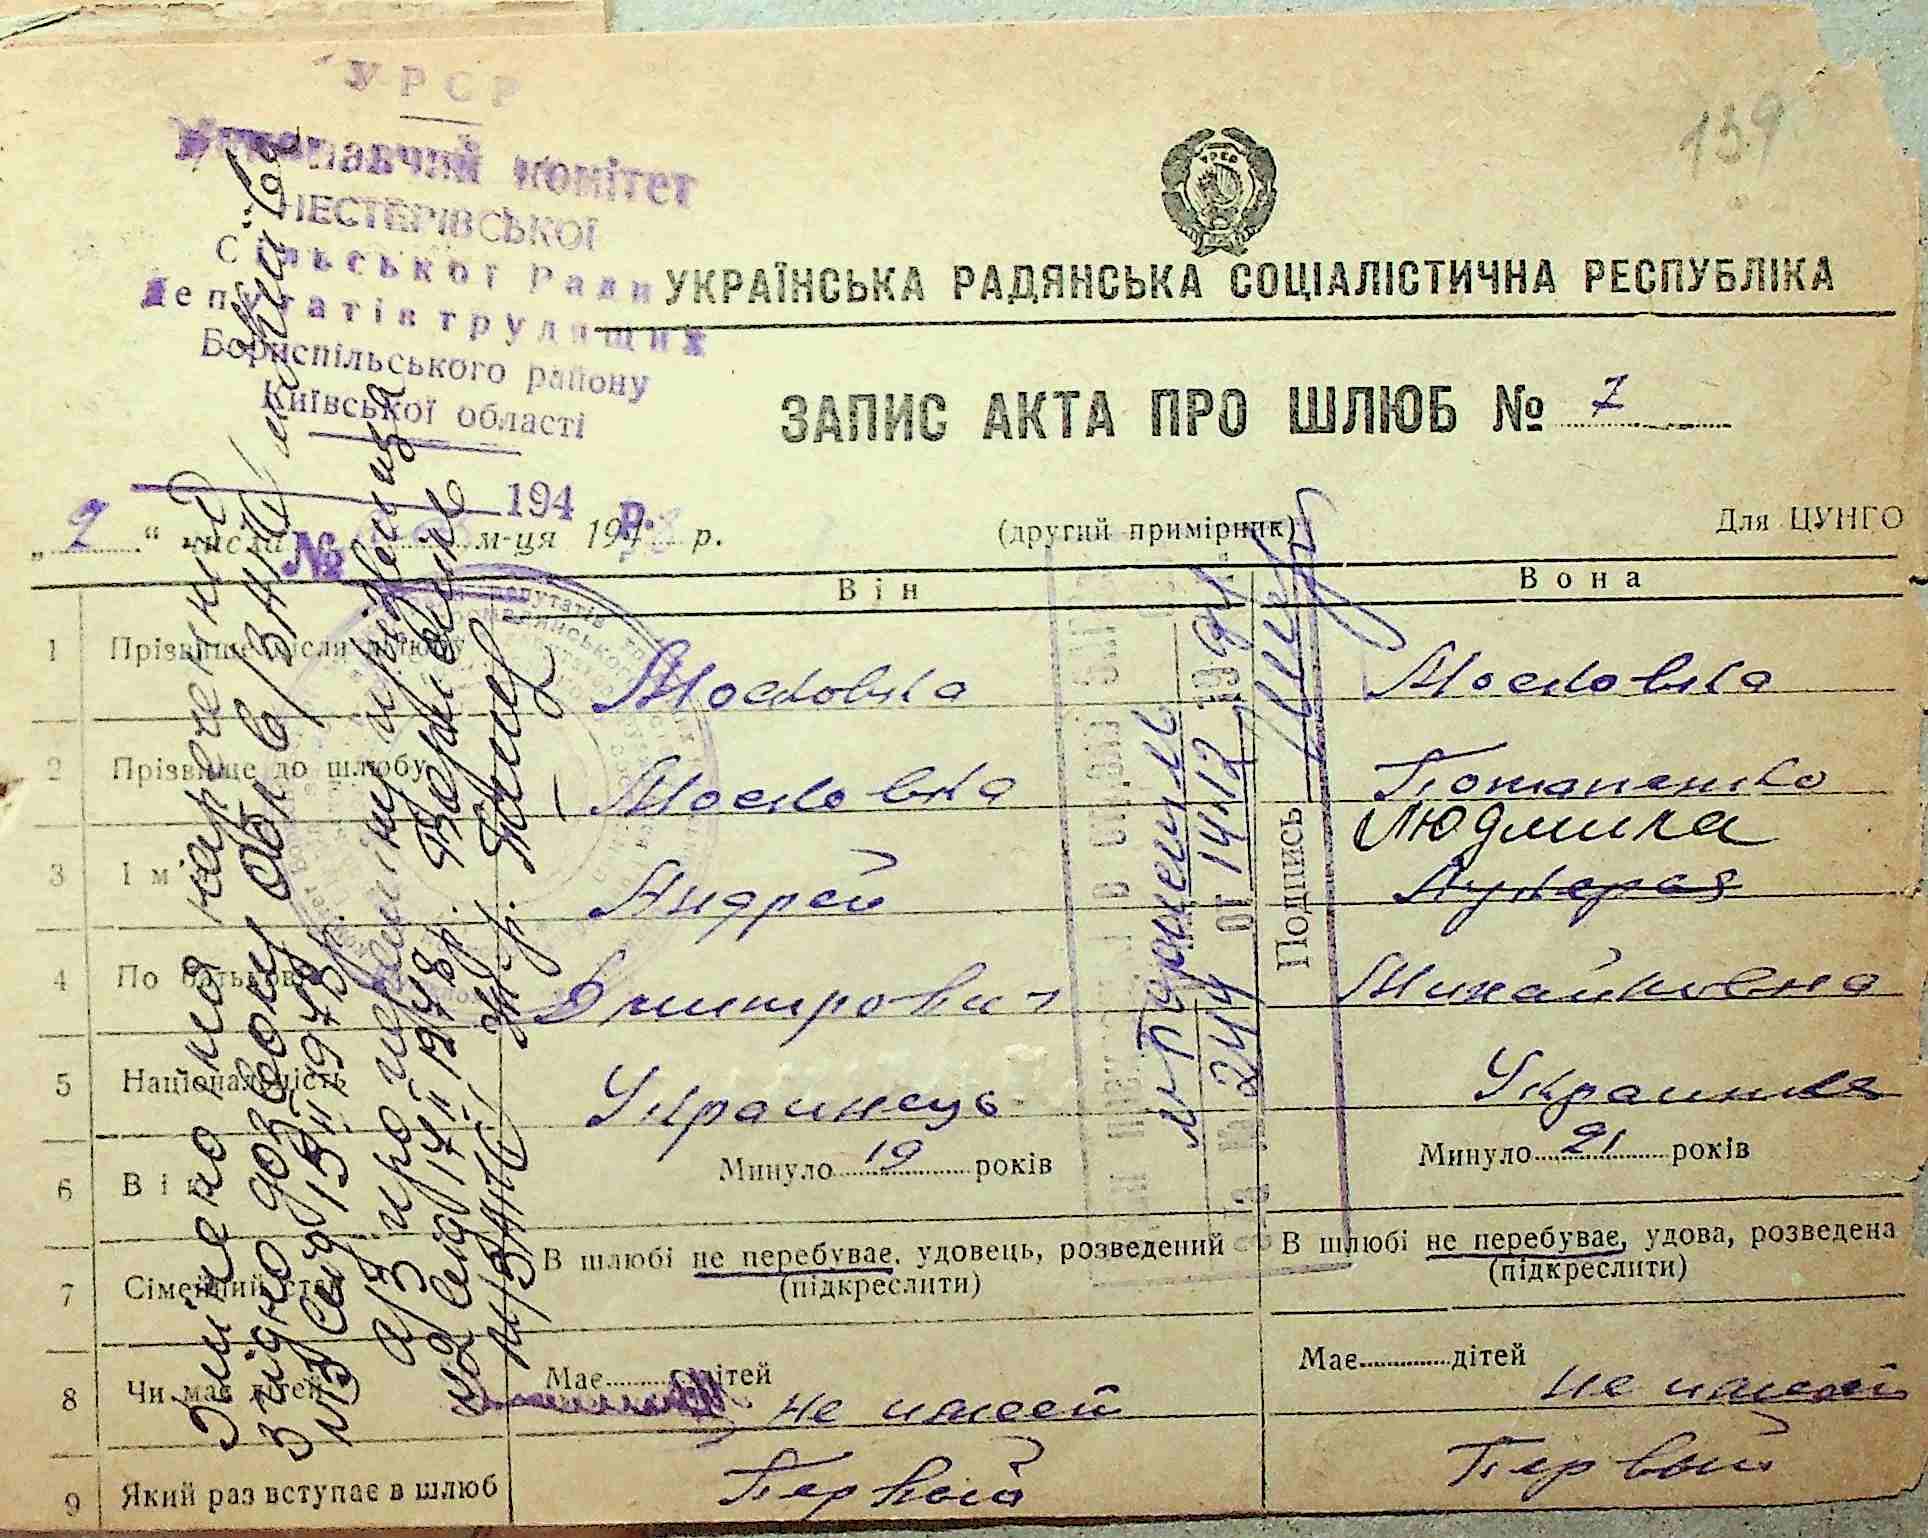 УРСР
Виконавчий комітет
НЕСТЕРІВСЬКОЇ
Сільської Ради
депутатів трудящих
Бориспільського району
Київської області
194 р.
№
139
УКРАЇНСЬКА РАДЯНСЬКА СОЦІАЛІСТИЧНА РЕСПУБЛІКА
ЗАПИС АКТА ПРО ШЛЮБ № 7
„2“ числа м-ця 194 р.
(другий примірник)
Для ЦУНГО
Він
Вона
1 Прізвище після шлюбу Московка Московка
2 Прізвище до шлюбу Московка Потапенко
3 Ім'я Андрей Людмила Лукерья
4 По батькові Дмитрович Михайловна
5 Національність Украинець Украинка
6 Вік Минуло 19 років Минуло 21 років
7 Сімейний стан В шлюбі не перебуває, удовець, розведений (підкреслити) В шлюбі не перебуває, удова, розведена (підкреслити)
8 Чи має дітей Має дітей не имеет Має дітей не имеет
9 Який раз вступає в шлюб Первый Первый
Змінено імя нареченій
згідно дозволу обл в/ЗАГС м. Київ
№3 від 13/II 1978р.
а/з про переміну прізвища
№2 від 17/II 1978р.
244 от 14.12
Подпись